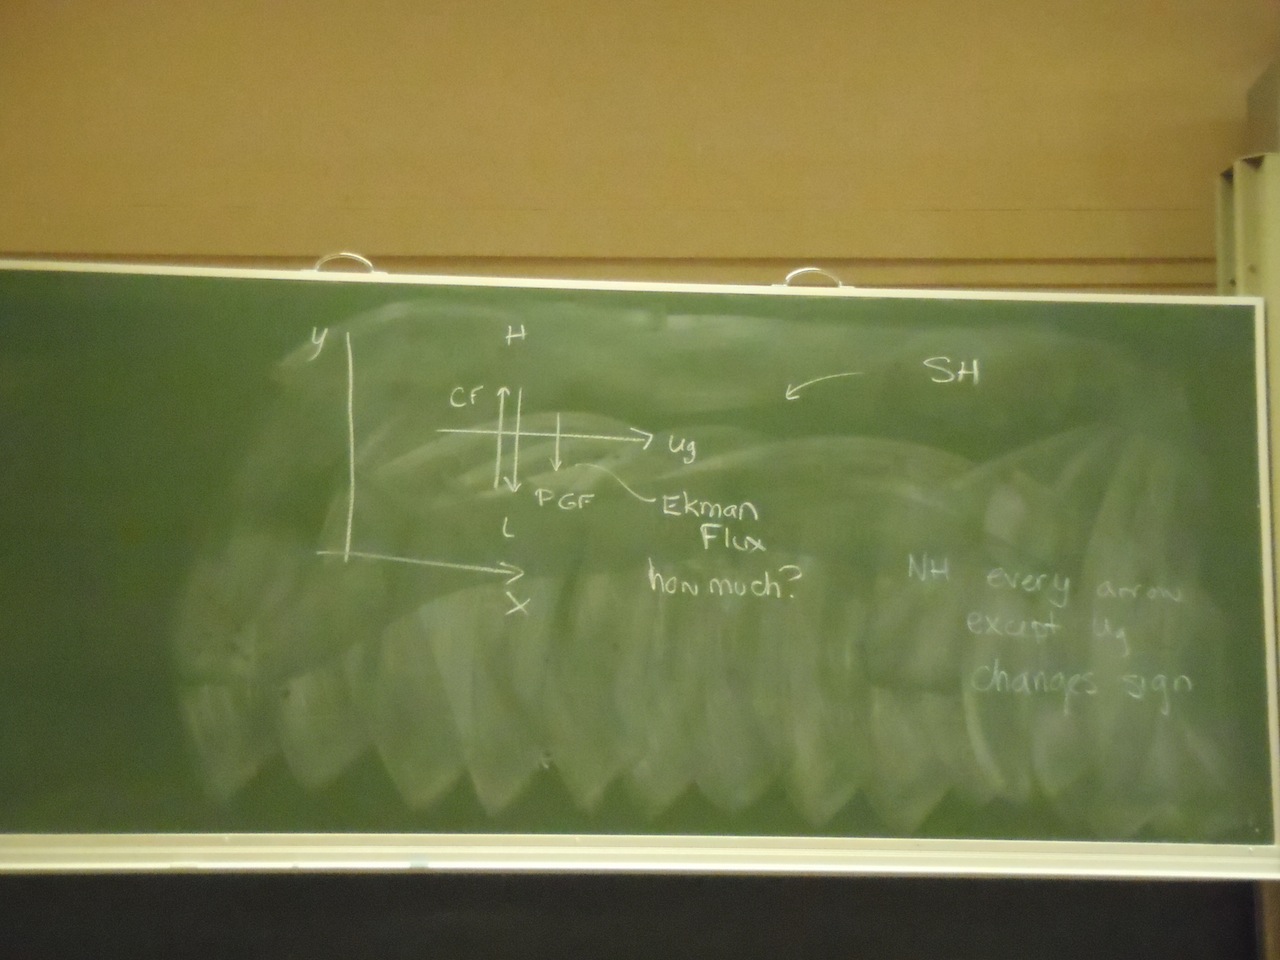 y
H
SH
CF
ug
PGF
Ekman
Flux
L
how much?
X
NH every arrow
except ug
changes sign